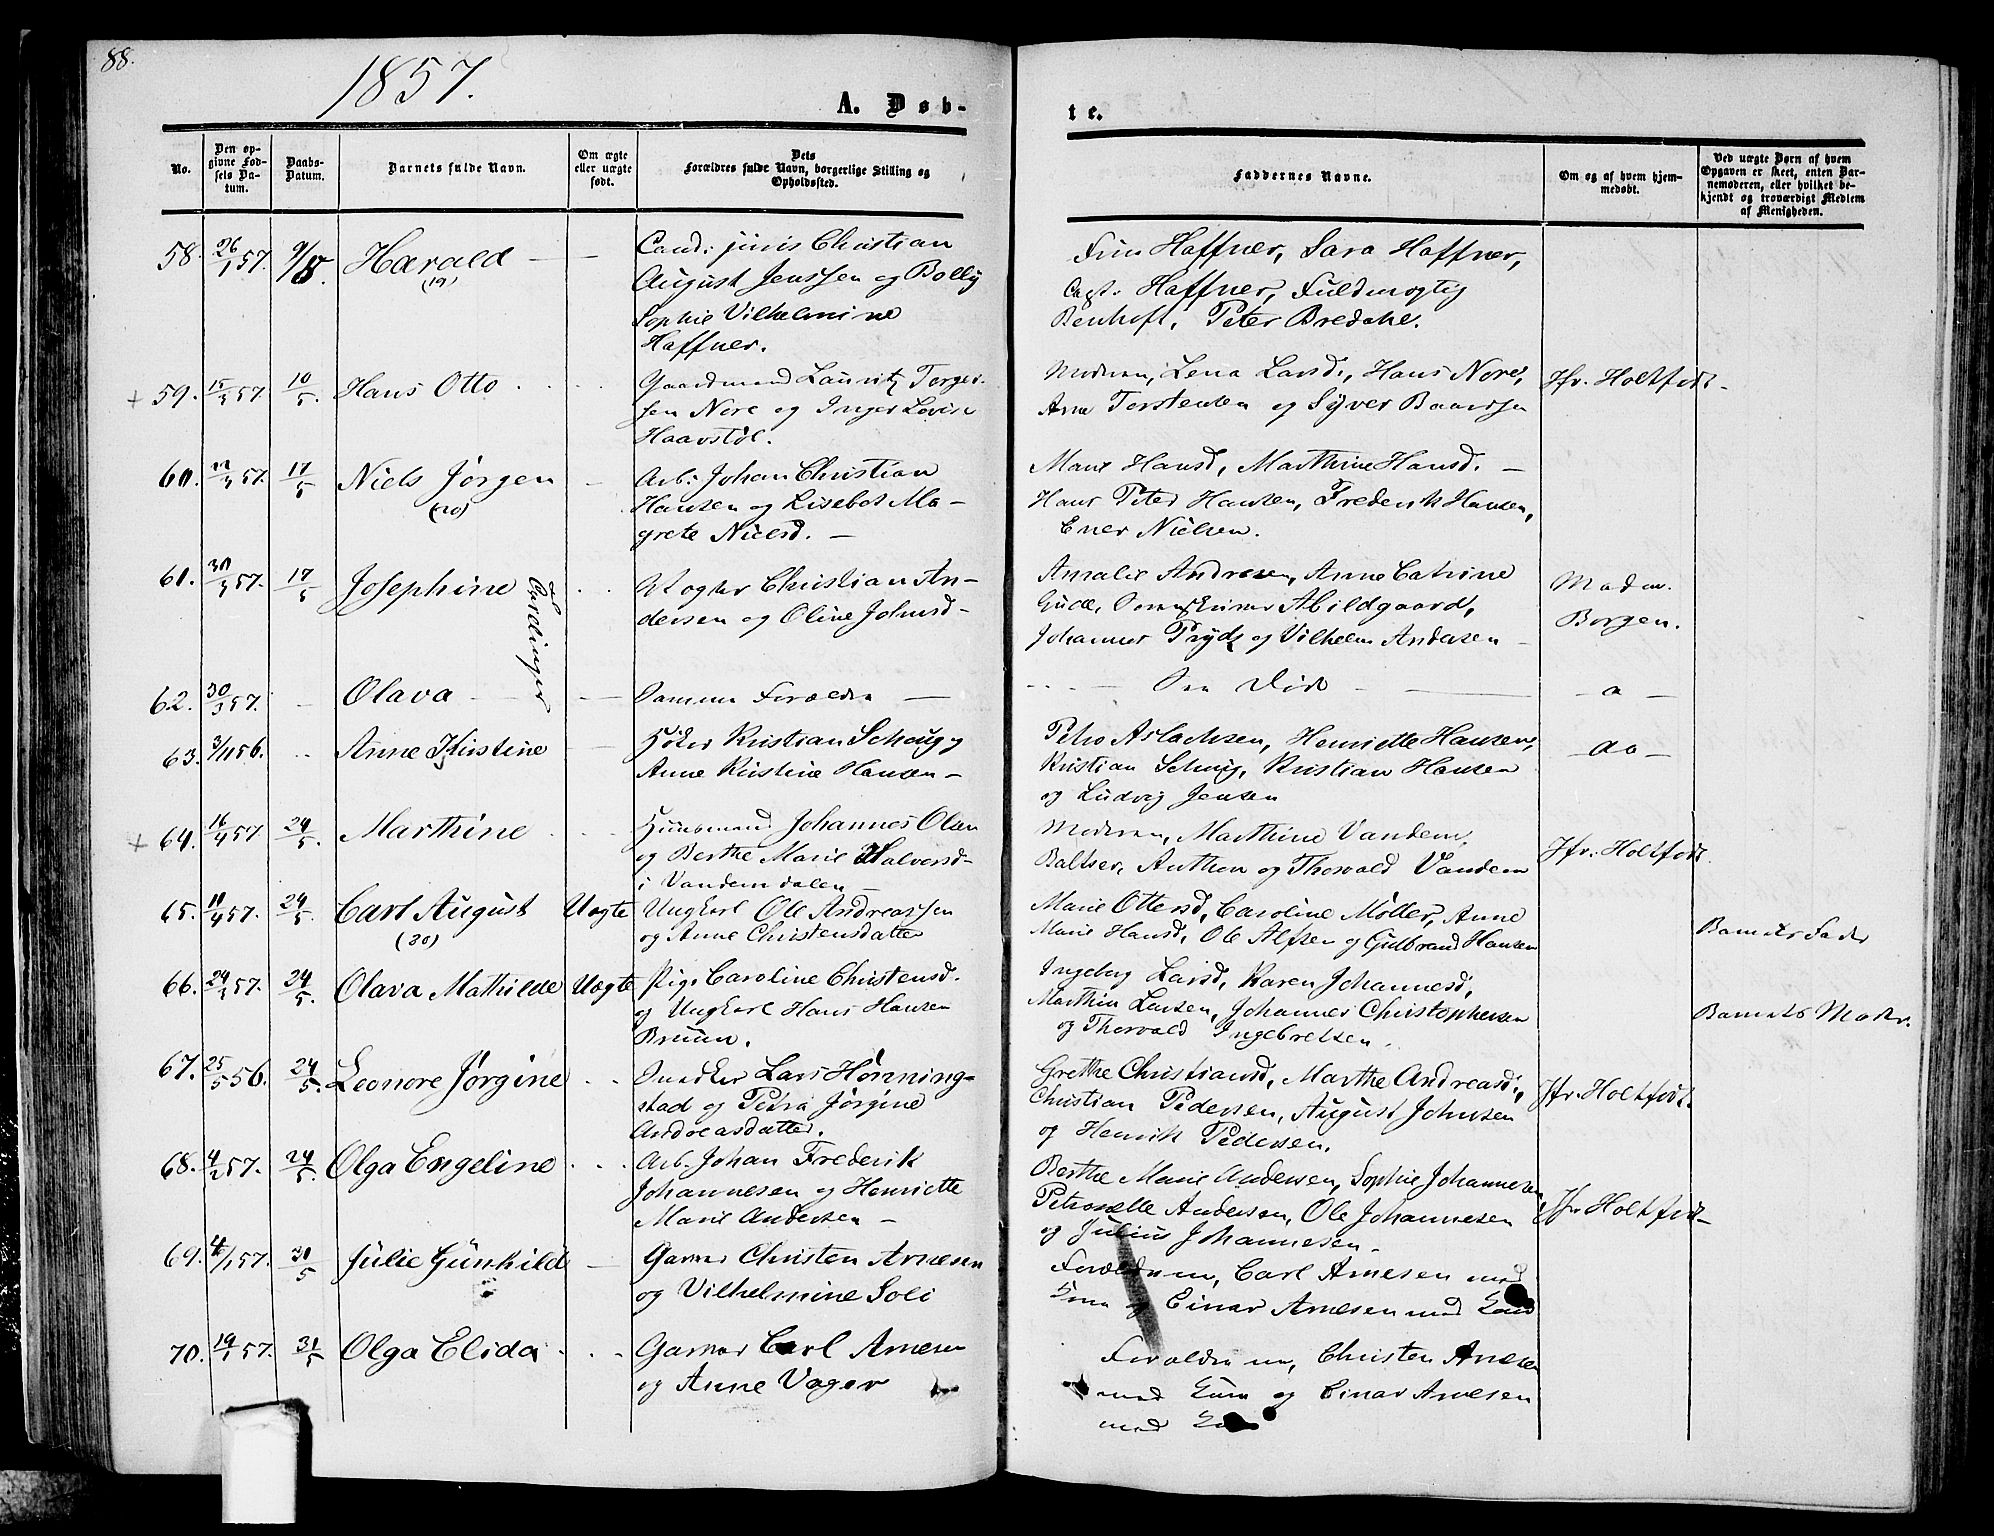 88.
1857.
A. Døb-
te.
No.
Den op-
givne Fød-
sels Da-
tum.
Daabs-
Datum.
Barnets fulde Navn.
Om ægte
eller uægte
født.
Dets
Forældres fulde Navn, borgerlige Stilling og
Opholdssted.
Faddernes Navne.
Om og af hvem hjem-
medøbt.
Ved uægte Børn af hvem
Opgaven er skeet, enten Bar-
nemoderen, eller hvilket be-
kjendt og troværdigt Medlem
af Menigheden.
58. 26/1 57. 9/8. Harald
(19)
Cand: juris Christian
August Jenssen og Bolly
Sophie Vilhelmine
Haffner.
Haffner, Sara Haffner,
Capt: Haffner, Fuldmægtig
Peter Bredahl.
59. 15/3 57. 10/5. Hans Otto
Gaardmand Lauritz Torger-
sen Nore og Inger Lovise
Haavstøl.
Moderen, Lena Larsd, Hans Nore,
Arne Torstensen og Syver Baardsen
Jfr. Holtfodt
60. 57. 17/5 Niels Jørgen
(20)
Arb: Johan Christian
Hansen og Lisebet Ma-
grete Nielsd. —
Marie Hansd, Marthine Hansd. —
Hans Peter Hansen, Frederik Hansen,
Ener Nielsen.
61. 57. 17/5 Josephine
Tvillinger
Christian An-
dersen og Oline Johnsd-
Amalie Andresen, Anne Catrine
Gude, Abildgaard,
Johannes Pryds og Vilhelm Andersen
Madm.
Borgen.
62. 30/3 57. Olava
Samme Forældre —
Død
63. 3/11 56. Anne Kirstine
Høker Kristian Schou og
Anne Kristine Hansen —
Petro Aslachsen, Henriette Hansen,
Kristian Schug, Kristian Hansen
og Ludvig Jensen
— do —
64. 16/4 57 24/5. Marthine
Huusmand Johannes Olsen
og Berthe Marie Halvorsd-
i Vandemdalen —
Moderen, Marthine Vandem,
Baltser, Anthon og Thorvald Vandem
Jfr. Holtfodt
65. 57. 24/5. Carl August Uægte
(30)
Ungkarl Ole Andreassen
og Anne Christensdatter
Marie Ottersd, Caroline Møller, Anne
Marie Hansd, Ole Alfsen og Gulbrand Hansen
Barnets Fader
66. 24/3 57. 24/5. Olava Mathilde Uægte
Pige Caroline Christensd.
og Ungkarl Hans Hansen
Bruun.
Ingeborg Larsd, Karen Johannesd,
Marthin Larsen, Johannes Christophersen
og Thorvald Ingebretsen.
Barnets Moder.
67. 25/5 56. 24/5. Leonore Jørgine
Snedker Lars Hønning-
stad og Petra Jørgine
Andreasdatter.
Grethe Christiansd, Marthe Andreasd,
Christian Pedersen, August Johnsen
og Henrik Pedersen.
Jfr. Holtfodt.
68. 4/2 57. 24/5. Olga Engeline
Arb. Johan Frederik
Johannesen og Henriette
Marie Andersen —
Berthe Marie Andersen, Sophie Johannesen
Petronelle Andersen, Ole Johannesen
og Julius Johannesen.
Jfr Holtfodt
69. 4/1 57. 31/5 Julie Gunhild
Garver Christen Arnesen
og Vilhelmine Soli
Forældrene, Carl Arnesen med
Kone og Einar Arnesen med Kone
70. 19/1 57. 31/5 Olga Elida
Garver Carl Arnesen
og Anne Vager
Forældrene, Christen Arnesen
med Kone og Einar Arnesen
med Kone